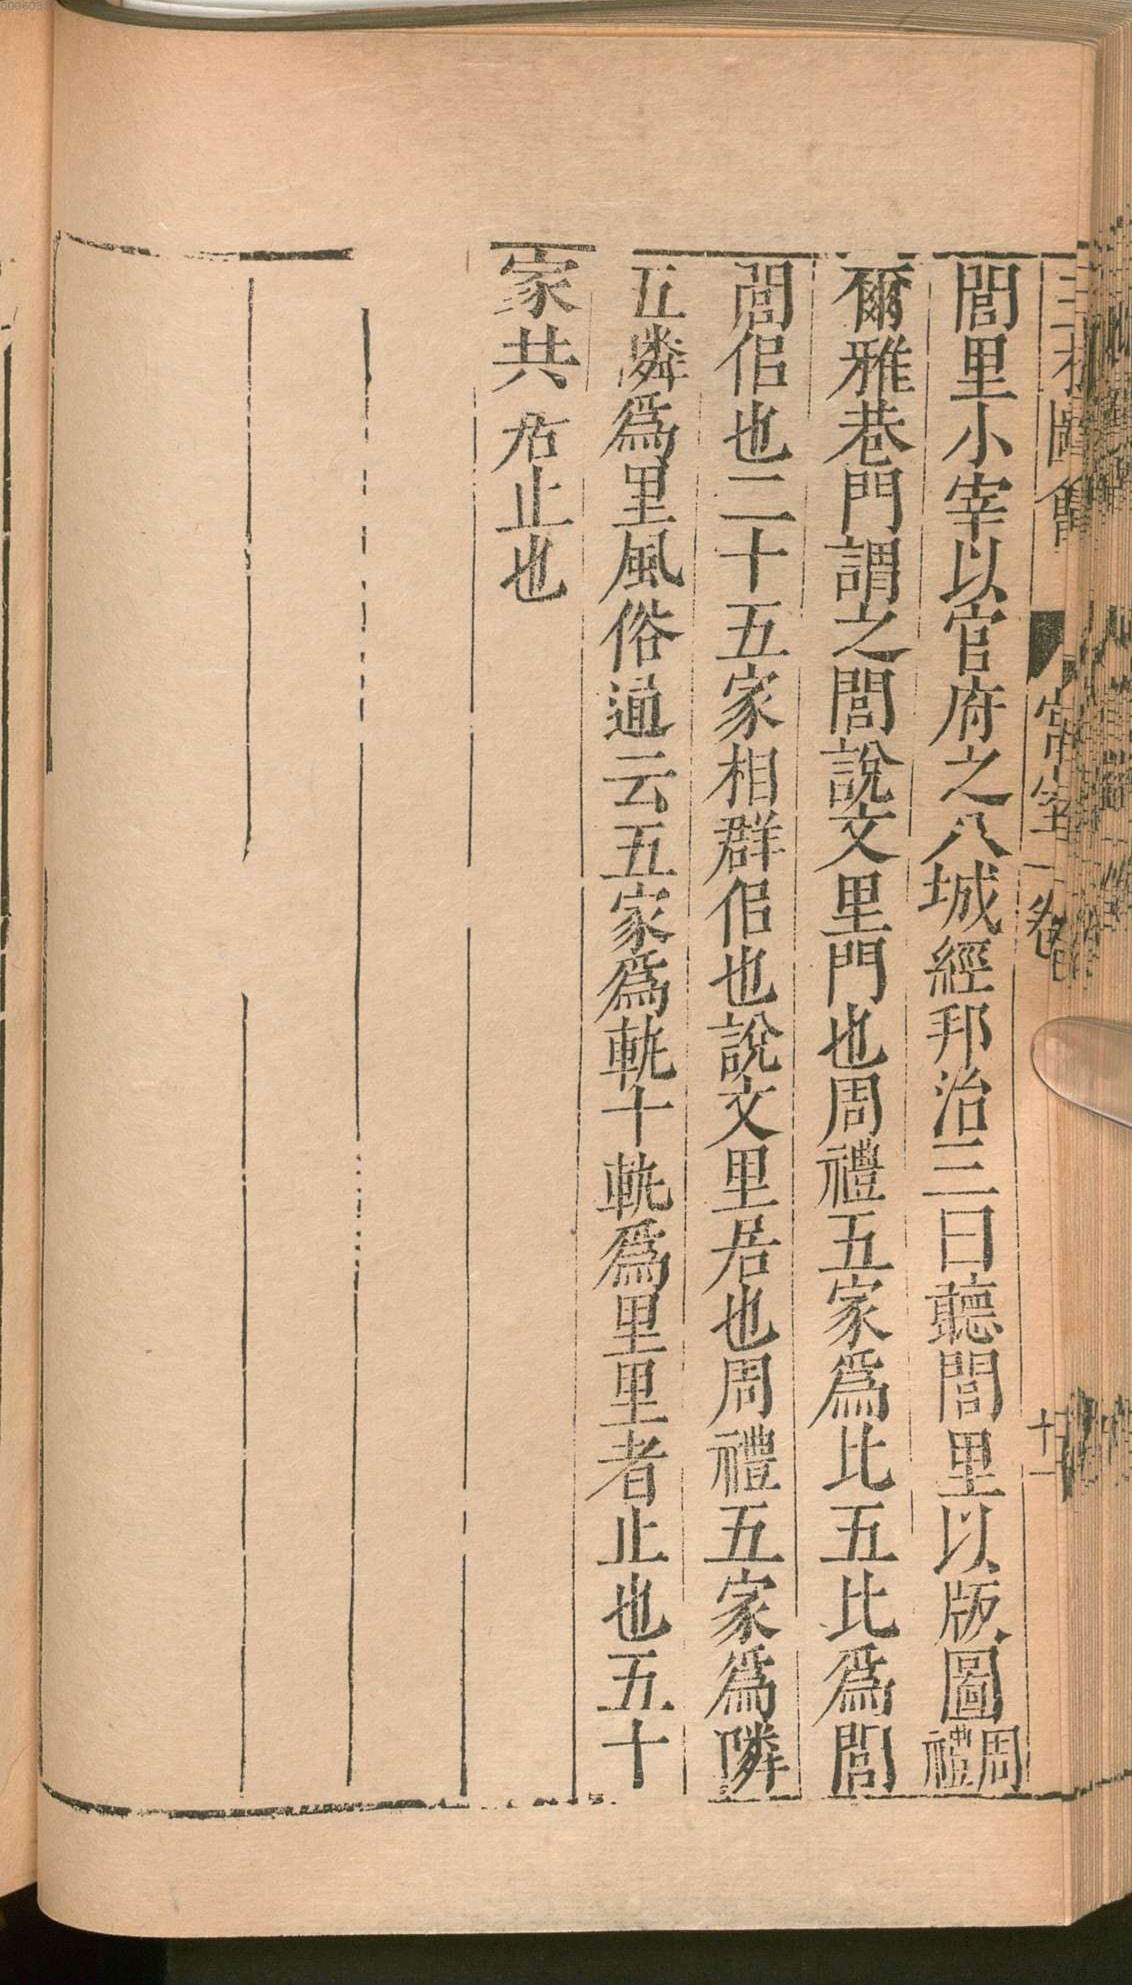 三才圖會
宮室一卷
十一
閭里小宰以官府之八城經邦治三曰聽閭里以版圖周禮
爾雅巷門謂之閭說文里門也周禮五家爲比五比爲閭
閭侶也二十五家相群侶也說文里居也周禮五家爲隣
五隣爲里風俗通云五家爲軌十軌爲里里者止也五十
家共居止也